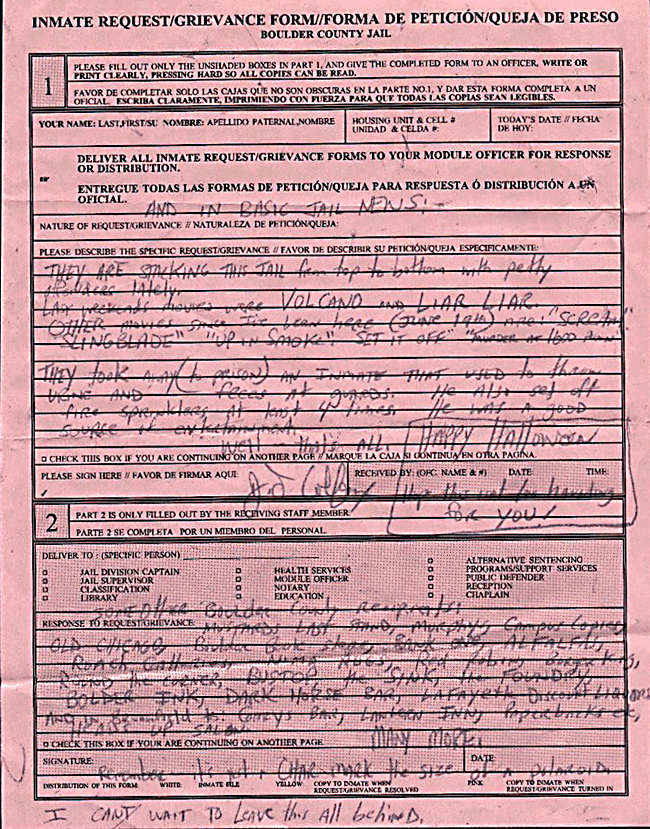 INMATE REQUEST/GRIEVANCE FORM//FORMA DE PETICIÓN/QUEJA DE PRESO
BOULDER COUNTY JAIL
1
PLEASE FILL OUT ONLY THE UNSHADED BOXES IN PART 1, AND GIVE THE COMPLETED FORM TO AN OFFICER, WRITE OR
PRINT CLEARLY, PRESSING HARD SO ALL COPIES CAN BE READ.
FAVOR DE COMPLETAR SOLO LAS CAJAS QUE NO SON OBSCURAS EN LA PARTE NO.1, Y DAR ESTA FORMA COMPLETA A UN
OFICIAL. ESCRIBA CLARAMENTE, IMPRIMIENDO CON FUERZA PARA QUE TODAS LAS COPIAS SEAN LEGIBLES.
YOUR NAME: LAST,FIRST/SU NOMBRE: APELLIDO PATERNAL,NOMBRE
HOUSING UNIT & CELL #
UNIDAD & CELDA #:
TODAY'S DATE // FECHA
DE HOY:
DELIVER ALL INMATE REQUEST/GRIEVANCE FORMS TO YOUR MODULE OFFICER FOR RESPONSE
OR DISTRIBUTION.
ENTREGUE TODAS LAS FORMAS DE PETICIÓN/QUEJA PARA RESPUESTA Ó DISTRIBUCIÓN A UN
OFICIAL.
AND IN BASIC JAIL NEWS:-
NATURE OF REQUEST/GRIEVANCE // NATURALEZA DE PETICIÓN/QUEJA:
PLEASE DESCRIBE THE SPECIFIC REQUEST/GRIEVANCE // FAVOR DE DESCRIBIR SU PETICIÓN/QUEJA ESPECIFICAMENTE:
THEY ARE STACKING THIS JAIL from top to bottom with petty
offenders lately.
LAST weekends movies were VOLCANO AND LIAR LIAR.
OTHER movies since I've been here (JUNE 19th) are: "SCREAM"
"SLINGBLADE" "UP IN SMOKE" "SET IT OFF" "MURDER AT 1600 PENN"
THEY took AWAY (to prison) AN INMATE THAT USED to throw
URINE AND feces at guards. He Also set off
fire sprinklers at least 4 times. He was A good
source of entertainment.
Well that's all.
HAPPY Halloween
CHECK THIS BOX IF YOU ARE CONTINUING ON ANOTHER PAGE // MARQUE LA CAJA SI CONTINUA EN OTRA PAGINA.
PLEASE SIGN HERE // FAVOR DE FIRMAR AQUI:
RECEIVED BY: (OFC. NAME & #)
DATE:
TIME:
for YOU!
2
PART 2 IS ONLY FILLED OUT BY THE RECEIVING STAFF MEMBER.
PARTE 2 SE COMPLETA POR UN MIEMBRO DEL PERSONAL.
DELIVER TO : (SPECIFIC PERSON)
JAIL DIVISION CAPTAIN
JAIL SUPERVISOR
CLASSIFICATION
LIBRARY
HEALTH SERVICES
MODULE OFFICER
NOTARY
EDUCATION
ALTERNATIVE SENTENCING
PROGRAMS/SUPPORT SERVICES
PUBLIC DEFENDER
RECEPTION
CHAPLAIN
SOME OTHER Boulder County Recipients:
RESPONSE TO REQUEST/GRIEVANCE:
MUSTARDS LAST STAND, Murphy's, Campus Copies,
OLD CHICAGO, Boulder Book ALFALFAS,
NEMO RUGS, Red Robin, Burger King,
ROUND the CORNER, BUSTOP, the SINK, the FOUNDRY,
BOLDER INK, DARK HORSE BAR, LAFAYETTE Discount LIQUORS
AND in BAR, LANTERN INN, Paperbacks etc,
HEADS UP SALON.
MANY MORE.
CHECK THIS BOX IF YOUR ARE CONTINUING ON ANOTHER PAGE
SIGNATURE:
DATE
Remember it's not A CHAR MARK the SIZE of A POLAROID.
DISTRIBUTION OF THIS FORM: WHITE: INMATE FILE YELLOW: COPY TO INMATE WHEN REQUEST/GRIEVANCE RESOLVED PINK: COPY TO INMATE WHEN REQUEST/GRIEVANCE TURNED IN
I CAN'T WAIT TO LEAVE this ALL behIND.